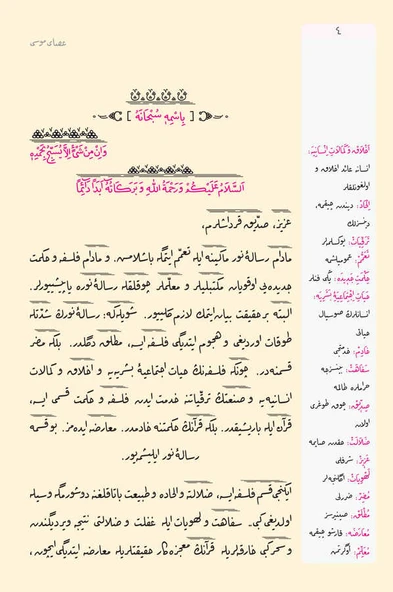 ٤
عصای موسی
[ بِاسْمِهِ سُبْحَانَهُ ]
وَاِنْ مِنْ شَيْءٍ اِلَّا يُسَبِّحُ بِحَمْدِهِ
اَلسَّلَامُ عَلَيْكُمْ وَرَحْمَةُ اللّٰهِ وَبَرَكَاتُهُ اَبَدًا دَائِمًا
عزیز، صدّیق قرداشلرم،
مادام رسالۀ نور ماكینه ایله تعمّم ایتمگه باشلامش. و مادام فلسفه و حكمت
جدیده‌یی اوقویان مكتبلیلر و معلّملر چوقلقله رسالۀ نوره یاپیشییورلر.
البته بر حقیقت بیان ایتمك لازم كلییور. شویله‌كه: رسالۀ نورك شدّتله
طوقات اوردیغی و هجوم ایتدیگی فلسفه ایسه، مطلق دگلدر. بلكه مضر
قسمنه‌در. چونكه فلسفه‌نڭ حیات اجتماعیۀ بشریه‌یه و اخلاق و كمالات
انسانیه‌یه و صنعتڭ ترقیاتنه خدمت ایدن فلسفه و حكمت قسمی ایسه،
قرآن ایله باریشیقدر. بلكه قرآنڭ حكمتنه خادمدر. معارضه ایده‌مز. بو قسمه
رسالۀ نور ایلیشمییور.
ایكنجی قسم فلسفه ایسه، ضلالته و الحاده و طبیعت باتاقلغنه دوشورمگه وسیله
اولدیغی كبی. سفاهت و لهویات ایله غفلت و ضلالتی نتیجه ویردیگندن
و سحر كبی خارقه‌لریله قرآنڭ معجزه‌كار حقیقتلریله معارضه ایتدیگی ایچون،
اخلاق و كمالات انسانیه:
انسانه عائد اخلاق و
اولغونلقلر
الحاد: دیندن چیقمه،
دینسزلك
ترقیات: یوكسلمه‌لر
تعمّم: عمومیلشمه
حكمت جدیده: یڭی فنلر
حیات اجتماعیۀ بشریه:
انسانلرڭ صوسیال
حیاتی
خادم: خدمتچی
صدّیق: چوق طوغری
اولان
ضلالت: حقدن صاپمه
عزیز: شرفلی
لهویات: اگلنجه‌لر
مضر: ضررلی
مطلق: صینیرسز
معارضه: قارشو چیقمه
معلّم: اوگرتمن